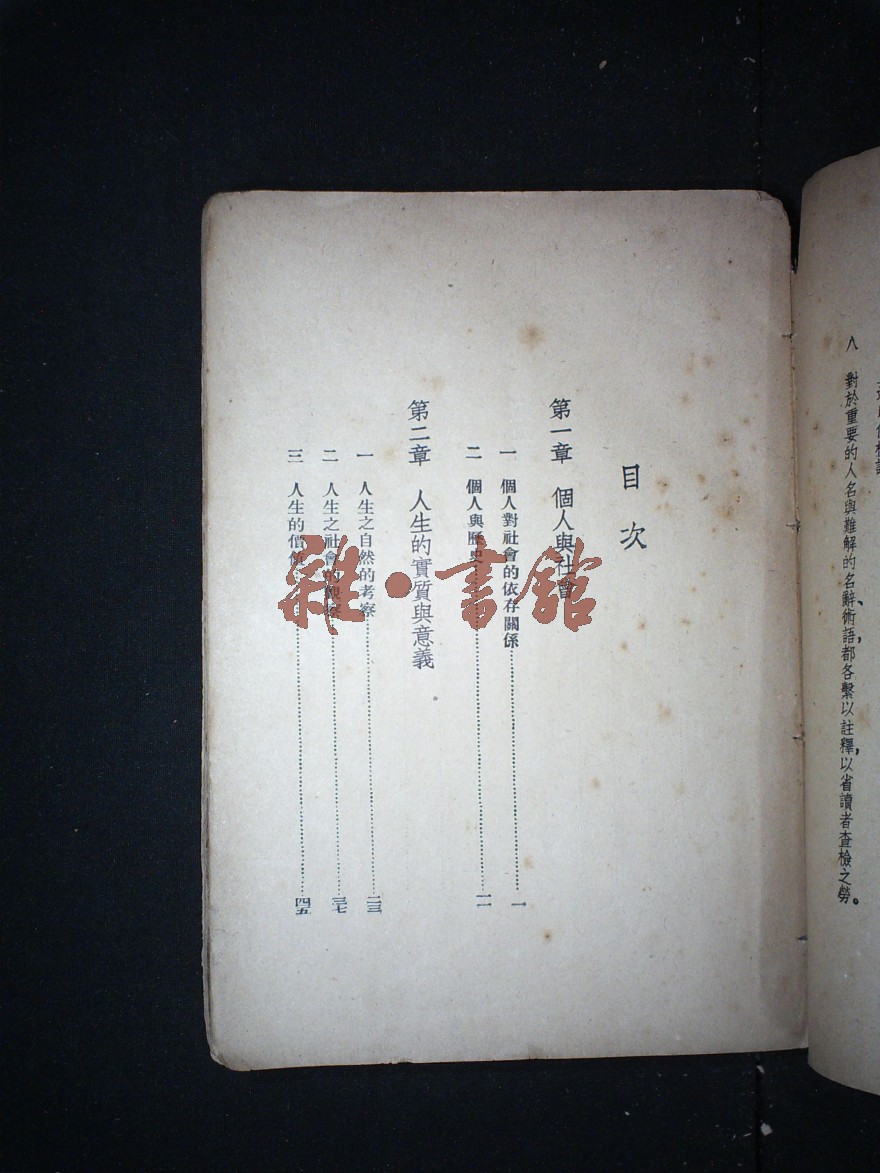 八 對於重要的人名與難解的名辭、術語,都各繫以註釋,以省讀者查檢之勞。
目次
第一章 個人與社會
一 個人對社會的依存關係……一
二 個人與歷史……一一
第二章 人生的實質與意義
一 人生之自然的考察……二三
二 人生之社會的觀察……三七
三 人生的價值……四五
雜·書館